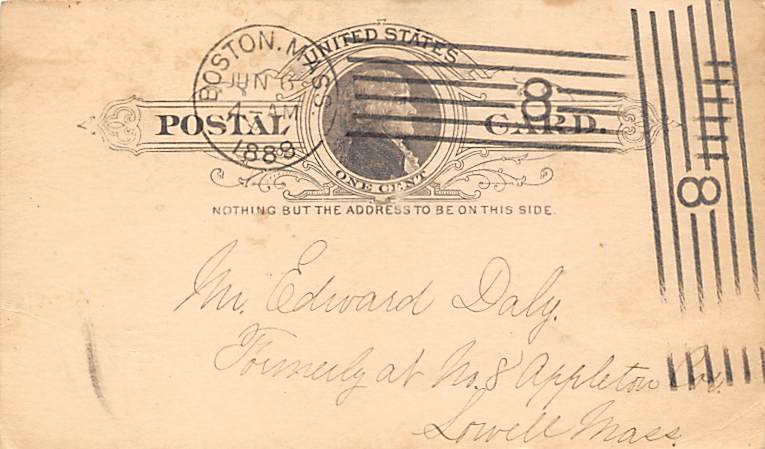 BOSTON. MASS.
JUN 6
4 AM
1888
UNITED STATES
POSTAL CARD.
ONE CENT
8
8
NOTHING BUT THE ADDRESS TO BE ON THIS SIDE.
Mr. Edward Daly.
Formerly at No. 8 Appleton Cor.
Lowell Mass.